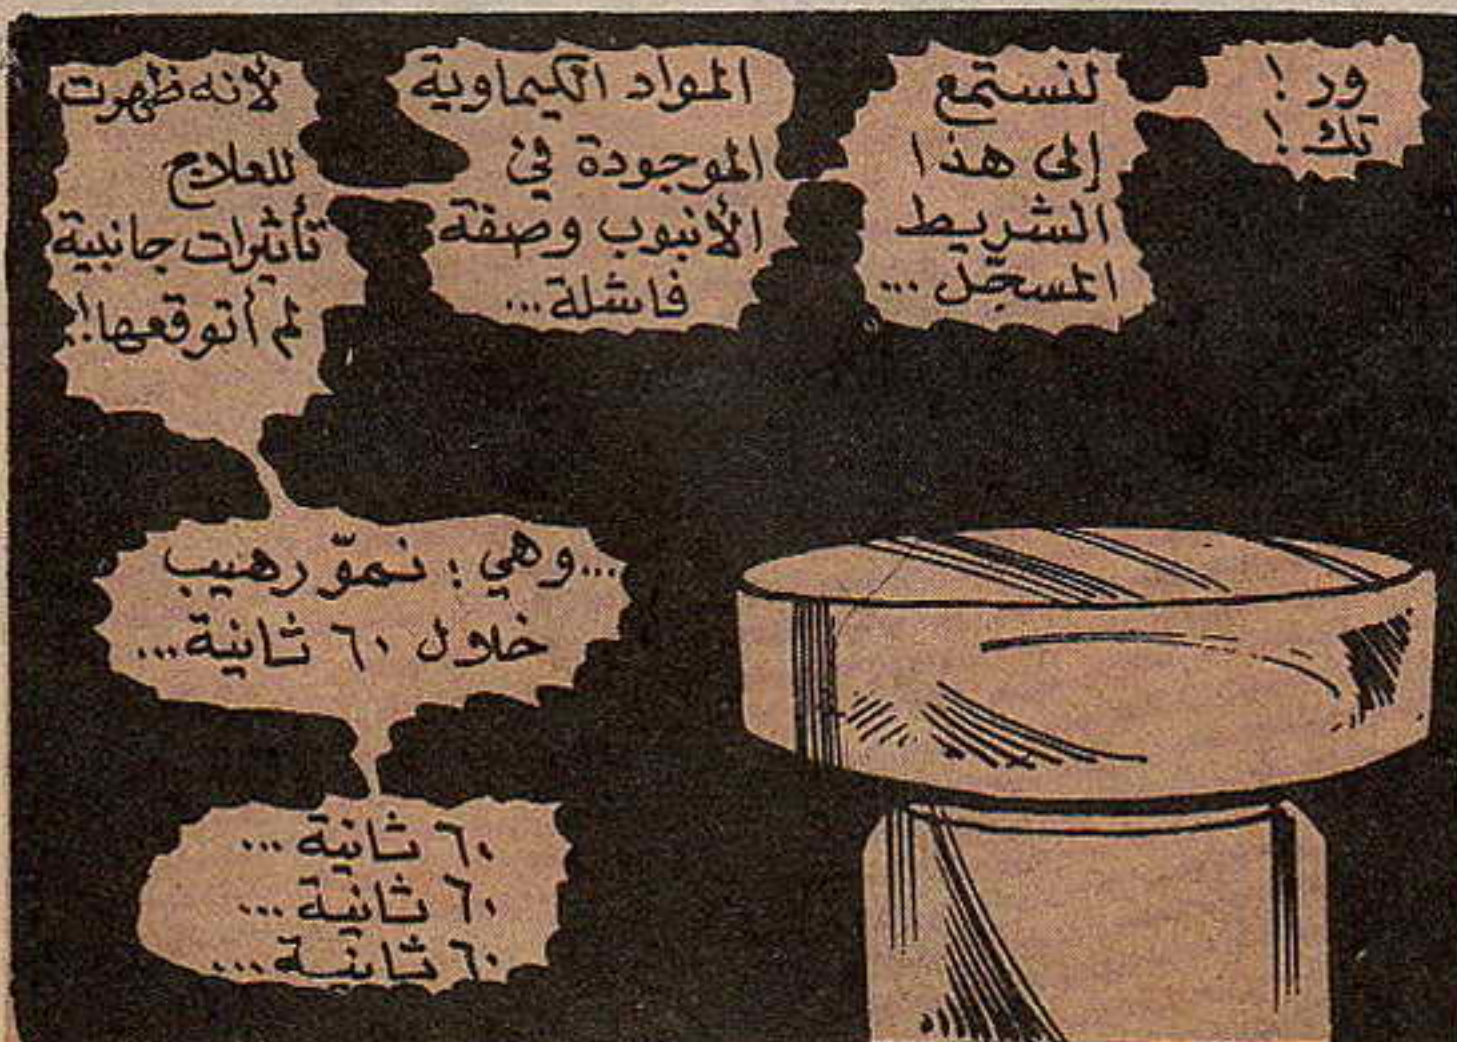 ور!
تك!
لنستمع
إلى هذا
الشريط
المسجّل...
المواد الكيماوية
الموجودة في
الأنبوب وصفة
فاشلة...
لأنه ظهرت
للعلاج
تأثيرات جانبية
لم أتوقعها!
...وهي: نموّ رهيب
خلال ٦٠ ثانية...
٦٠ ثانية...
٦٠ ثانية...
٦٠ ثانية...